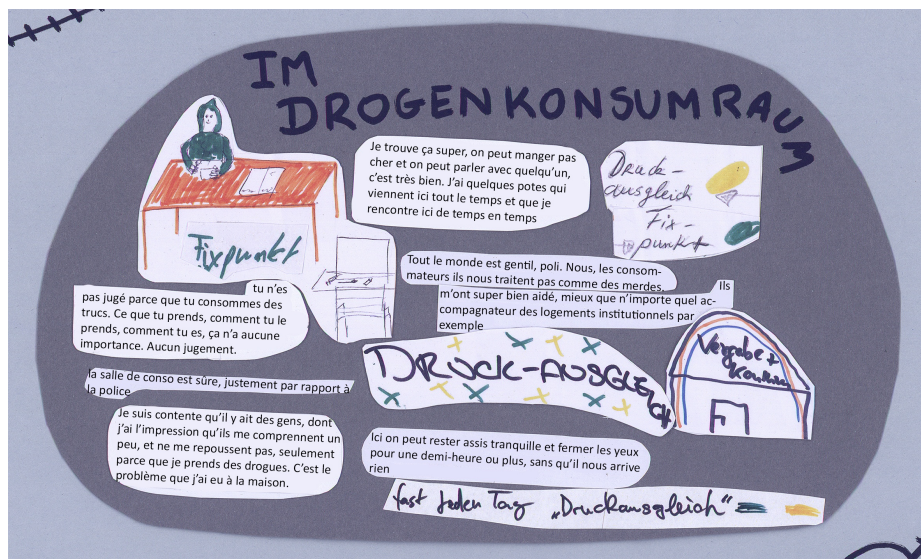 IM
DROGENKONSUMRAUM
Je trouve ça super, on peut manger pas
cher et on peut parler avec quelqu'un,
c'est très bien. J'ai quelques potes qui
viennent ici tout le temps et que je
rencontre ici de temps en temps
Druck-
ausgleich
Fix-
punkt
Fixpunkt
Tout le monde est gentil, poli. Nous, les consom-
mateurs ils nous traitent pas comme des merdes.
Ils
m'ont super bien aidé, mieux que n'importe quel ac-
compagnateur des logements institutionnels par
exemple
tu n'es
pas jugé parce que tu consommes des
trucs. Ce que tu prends, comment tu le
prends, comment tu es, ça n'a aucune
importance. Aucun jugement.
DRUCK-AUSGLEICH
Vergabe +
la salle de conso est sûre, justement par rapport à
la police
Je suis contente qu'il y ait des gens, dont
j'ai l'impression qu'ils me comprennent un
peu, et ne me repoussent pas, seulement
parce que je prends des drogues. C'est le
problème que j'ai eu à la maison.
Ici on peut rester assis tranquille et fermer les yeux
pour une demi-heure ou plus, sans qu'il nous arrive
rien
fast jeden Tag „Druckausgleich"